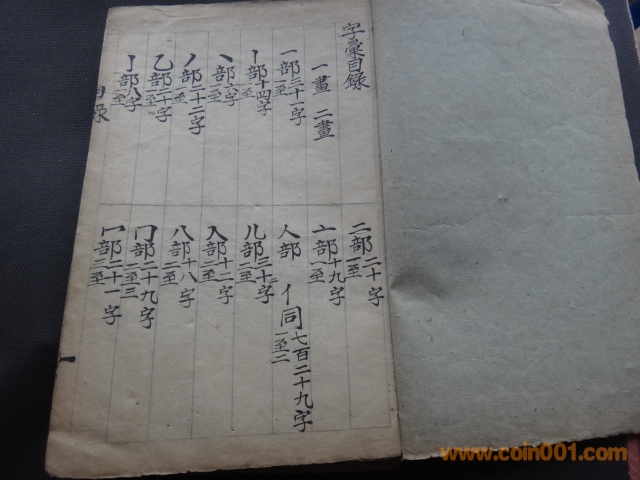 字彙目錄
一畫 二畫
一部三十一字 一至
丨部十四字 一至
丶部六字 一至
丿部二十二字 一至
乙部二十字 一至
亅部八字 一至
目錄
二部二十字 一至
亠部十九字 一至
人部 亻同七百二十九字 一至二
儿部三十字 二至
入部十二字 二至
八部十八字 二至
冂部二十九字 二至三
冖部二十一字 三至
一
www.coin001.com